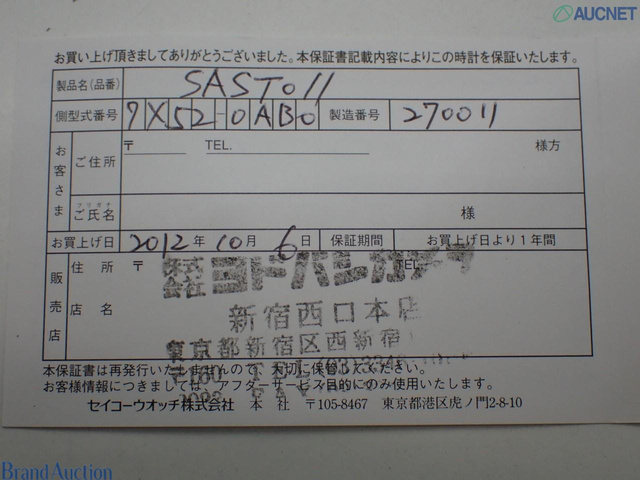 AUCNET
お買い上げ頂きましてありがとうございました。本保証書記載内容によりこの時計を保証いたします。
製品名(品番) SAST011
側型式番号 7X52-0AB0 製造番号 270011
お客さま ご住所 〒 TEL. 様方
フリガナ
ご氏名 様
お買上げ日 2012年10月6日 保証期間 お買上げ日より1年間
販売店 住所 〒 TEL.
店名
株式会社 ヨドバシカメラ
新宿西口本店
東京都新宿区西新宿
本保証書は再発行いたしませんので、大切に保管してください。
お客様情報につきましては、アフターサービス目的にのみ使用いたします。
セイコーウオッチ株式会社 本社 〒105-8467 東京都港区虎ノ門2-8-10
Brand Auction